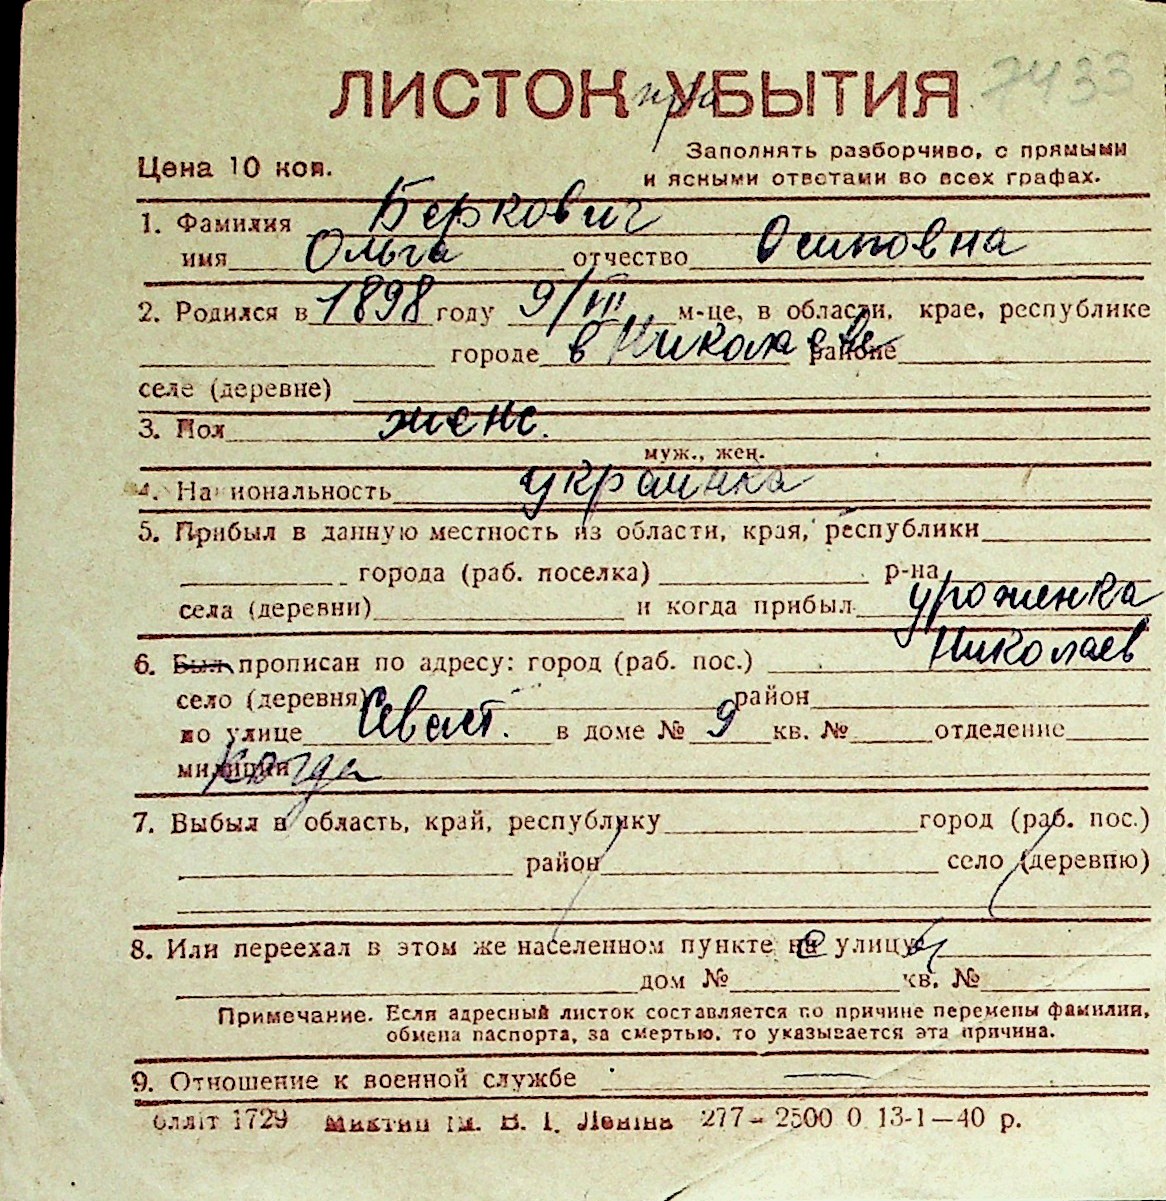 ЛИСТОК УБЫТИЯ
при
7433
Цена 10 коп.
Заполнять разборчиво, с прямыми
и ясными ответами во всех графах.
1. Фамилия Беркович
имя Ольга отчество Осиповна
2. Родился в 1898 году 9/III м-це, в области, крае, республике
городе в Николаеве районе
селе (деревне)
3. Пол женс.
муж., жен.
4. Национальность украинка
5. Прибыл в данную местность из области, края, республики
города (раб. поселка) р-на
села (деревни) и когда прибыл уроженка
Николаев
6. Был прописан по адресу: город (раб. пос.)
село (деревня) район
по улице Севаст. в доме № 9 кв. № отделение
милиции когда
7. Выбыл в область, край, республику город (раб. пос.)
район село (деревню)
8. Или переехал в этом же населенном пункте на улицу
дом № кв. №
Примечание. Если адресный листок составляется по причине перемены фамилии,
обмена паспорта, за смертью, то указывается эта причина.
9. Отношение к военной службе —
блліт 1729 ім. В. І. Леніна 277–2500 0 13-1—40 р.